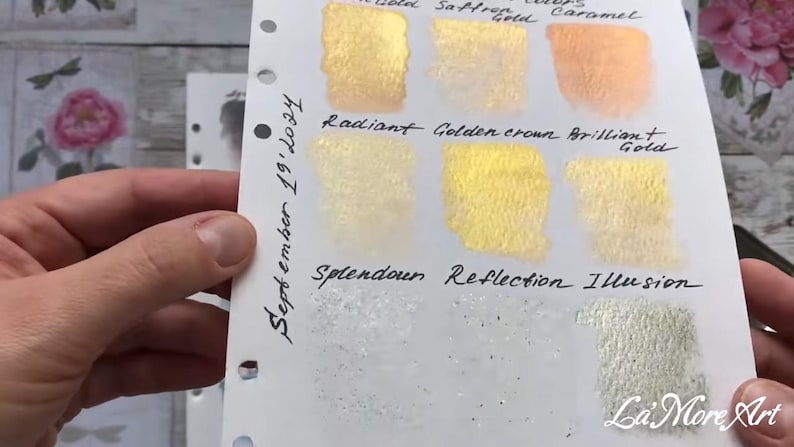 Gold Saffron
Gold
Colors
Caramel
Radiant Golden crown Brilliant
Gold
September 19'2024
Splendour Reflection Illusion
La'MoreArt